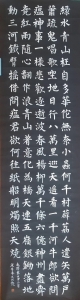 綠水青山枉自多華佗無奈小蟲何千村薜荔人遺矢萬戶
蕭疏鬼唱歌坐地日行八萬里巡天遙看一千河牛郎欲問
瘟神事一樣悲歡逐逝波春風楊柳萬千條六億神州盡舜
堯紅雨隨心翻作浪青山着意化為橋天連五嶺銀鋤落地
動三河鐵臂搖借問瘟君欲何往紙船明燭照天燒